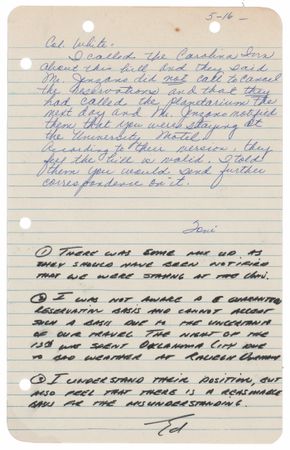 5-16-
Col. White:
I called the Carolina Inn
about this bill and they said
Mr. Jenzano did not call to cancel
the reservations and that they
had called the planetarium the
next day and Mr. Jenzano notified
them that you were staying at
the University Motel.
According to their version, they
feel the bill is valid. I told
them you would send further
correspondence on it.
Toni
① THERE WAS SOME MIX UP AS
THEY SHOULD HAVE BEEN NOTIFIED
THAT WE WERE STAYING AT THE UNIV.
② I WAS NOT AWARE A GUARANTEED
RESERVATION BASIS AND CANNOT ACCEPT
SUCH A BASIS DUE TO THE UNCERTAINTY
OF OUR TRAVEL. THE NIGHT OF THE
13TH WAS SPENT OKLAHOMA CITY DUE
TO BAD WEATHER AT RALEIGH DURHAM
③ I UNDERSTAND THEIR POSITION, BUT
ALSO FEEL THAT THERE IS A REASONABLE
BASIS FOR THE MISUNDERSTANDING.
Ed